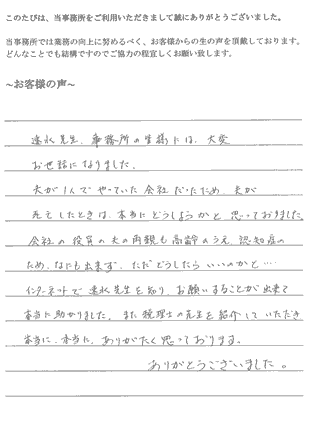 このたびは、当事務所をご利用いただきまして誠にありがとうございました。
当事務所では業務の向上に努めるべく、お客様からの生の声を頂戴しております。
どんなことでも結構ですのでご協力の程宜しくお願い致します。
~お客様の声~
速水先生、事務所の皆様には、大変
お世話になりました。
夫が1人でやっていた会社だったため、夫が
死亡したときは、本当にどうしようかと思っておりました。
会社の役員の夫の両親も高齢のうえ、認知症の
ため、なにも出来ず、ただどうしたらいいのかと….
インターネットで速水先生を知り、お願いすることが出来て
本当に助かりました。また税理士の先生を紹介していただき
本当に、本当に、ありがたく思っております。
ありがとうございました。